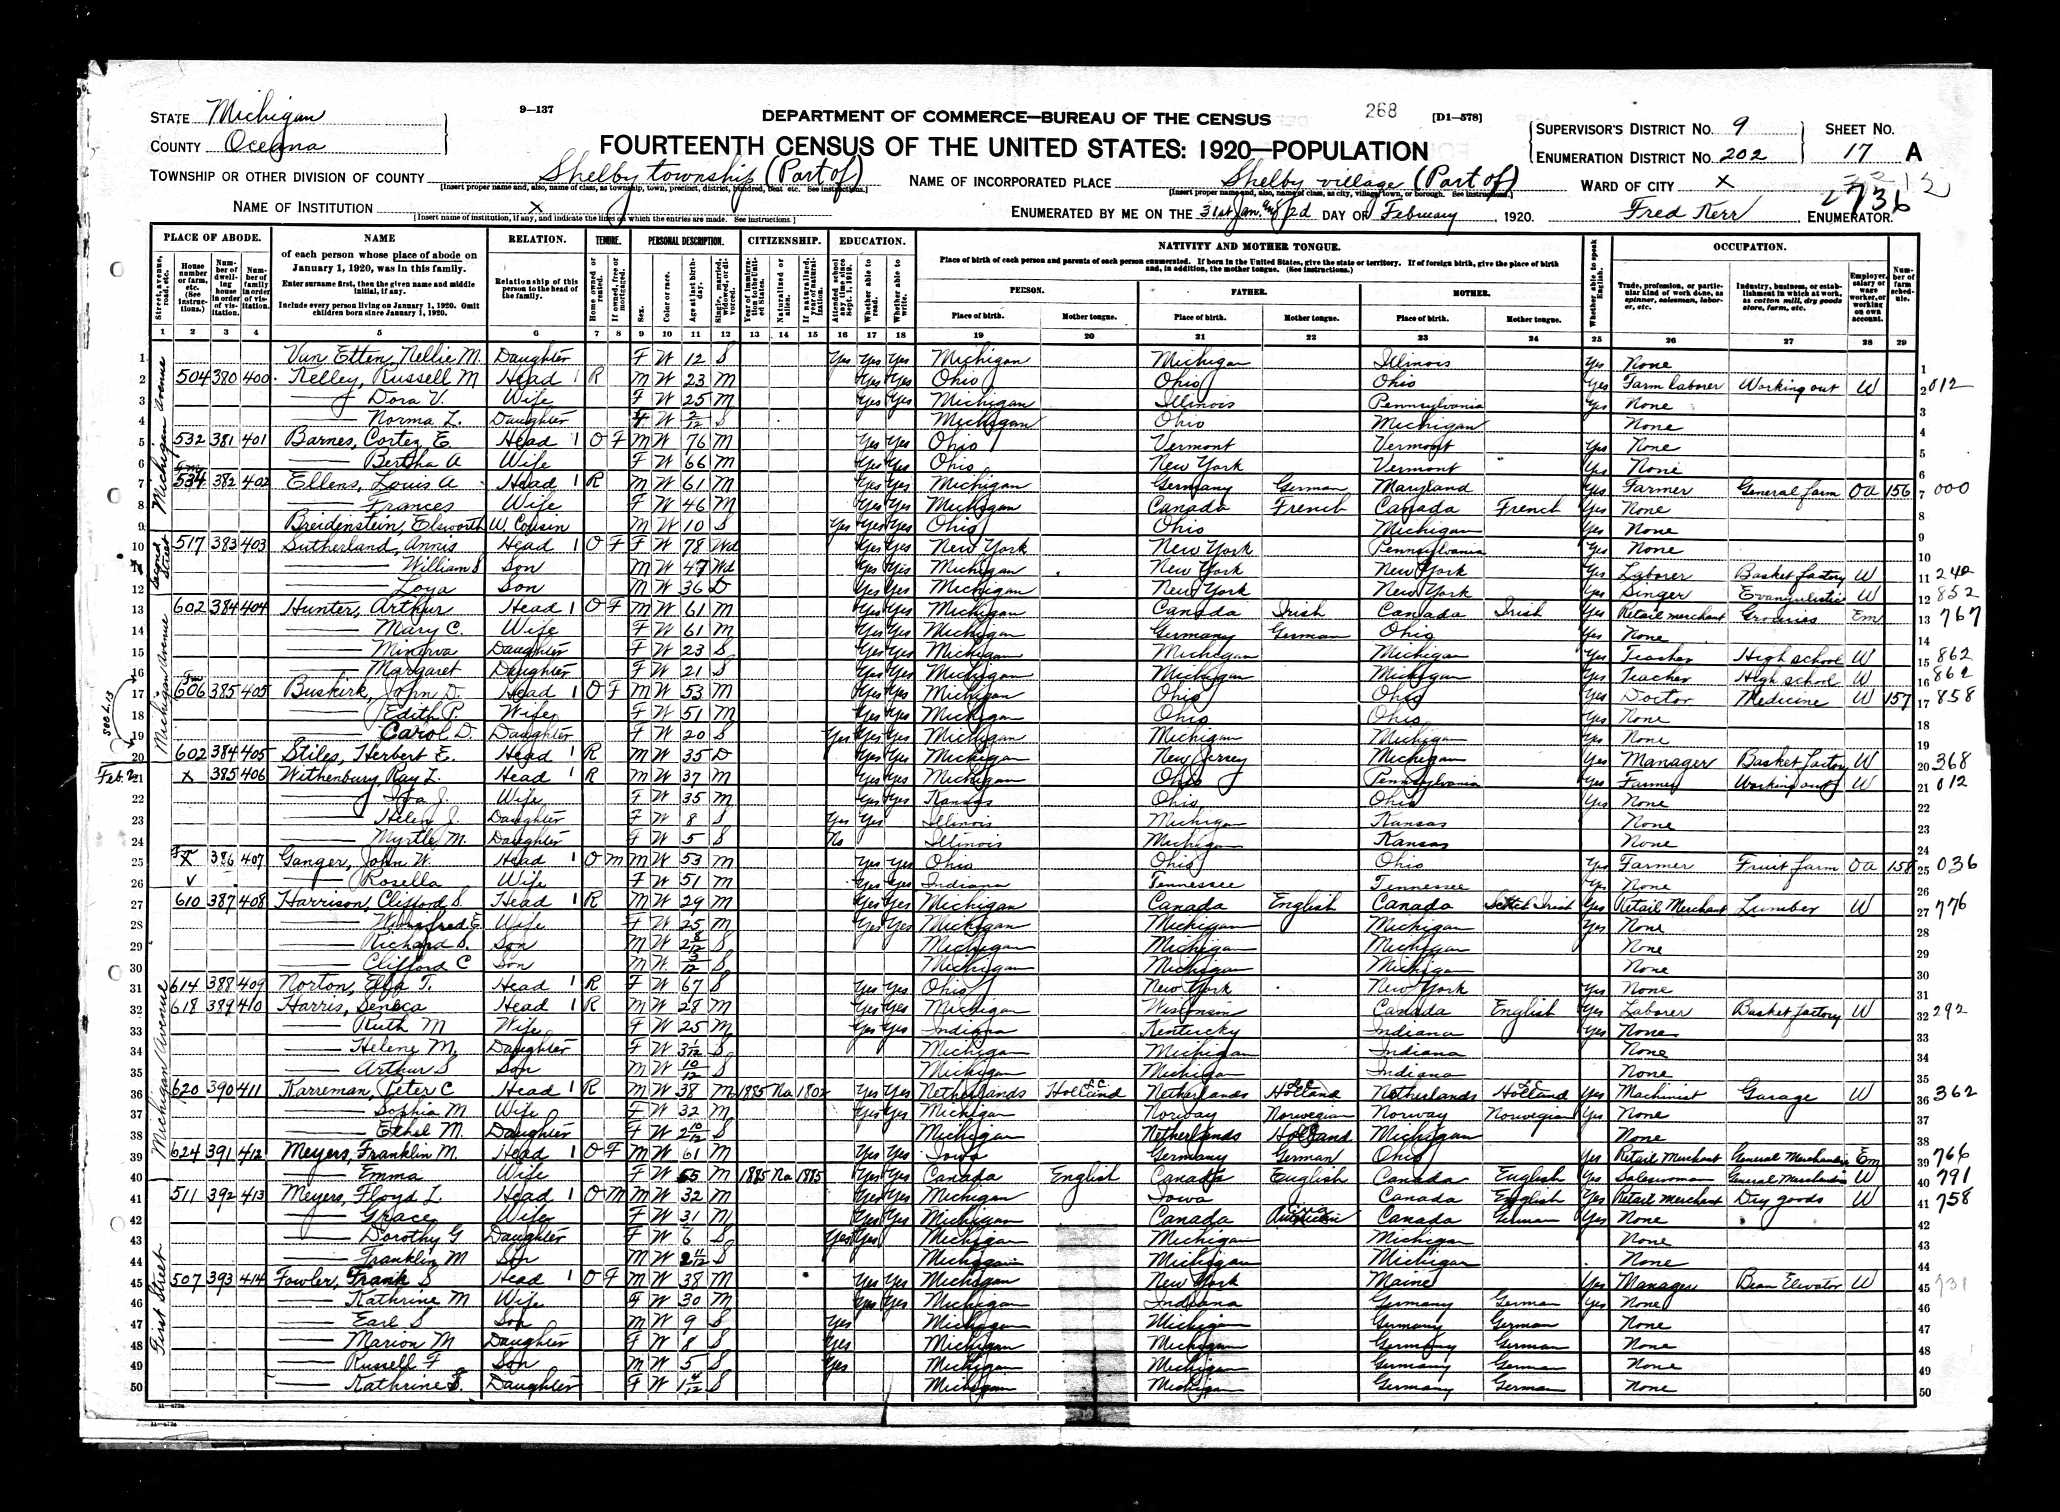 STATE Michigan
COUNTY Oceana
9—137
DEPARTMENT OF COMMERCE—BUREAU OF THE CENSUS
268
[D1—578]
FOURTEENTH CENSUS OF THE UNITED STATES: 1920—POPULATION
SUPERVISOR'S DISTRICT NO. 9
ENUMERATION DISTRICT NO. 202
SHEET NO.
17 A
TOWNSHIP OR OTHER DIVISION OF COUNTY Shelby township (Part of)
NAME OF INCORPORATED PLACE Shelby village (Part of)
WARD OF CITY X
2736
NAME OF INSTITUTION X
[Insert name of institution, if any, and indicate the lines on which the entries are made. See instructions.]
ENUMERATED BY ME ON THE 31st Jan. and 2d DAY OF February, 1920. Fred Kerr ENUMERATOR.
PLACE OF ABODE. NAME RELATION. TENURE. PERSONAL DESCRIPTION. CITIZENSHIP. EDUCATION. NATIVITY AND MOTHER TONGUE. OCCUPATION.
of each person whose place of abode on January 1, 1920, was in this family.
Enter surname first, then the given name and middle initial, if any.
Include every person living on January 1, 1920. Omit children born since January 1, 1920.
Relationship of this person to the head of the family.
Place of birth of each person and parents of each person enumerated. If born in the United States, give the state or territory. If of foreign birth, give the place of birth and, in addition, the mother tongue. (See instructions.)
PERSON. FATHER. MOTHER.
Place of birth. Mother tongue. Place of birth. Mother tongue. Place of birth. Mother tongue.
1 2 3 4 5 6 7 8 9 10 11 12 13 14 15 16 17 18 19 20 21 22 23 24 25 26 27 28 29
1 Van Etten, Nellie M. Daughter F W 12 S Yes Yes Yes Michigan Michigan Illinois Yes None
2 504 380 400 Kelley, Russell M Head 1 R M W 23 M Yes Yes Ohio Ohio Ohio Yes Farm laborer Working out W 012
3 Dora V. Wife F W 25 M Yes Yes Michigan Illinois Pennsylvania Yes None
4 Norma L. Daughter F W 2/12 S Michigan Ohio Michigan None
5 532 381 401 Barnes, Cortez E Head 1 O F M W 76 M Yes Yes Ohio Vermont Vermont Yes None
6 Bertha A Wife F W 66 M Yes Yes Ohio New York Vermont Yes None
7 534 382 402 Ellens, Louis A Head 1 R M W 61 M Yes Yes Michigan Germany German Maryland Yes Farmer General farm OA 156 000
8 Frances Wife F W 46 M Yes Yes Michigan Canada French Canada French Yes None
9 Breidenstein, Elsworth W Cousin M W 10 S Yes Yes Yes Ohio Ohio Michigan Yes None
10 517 383 403 Sutherland, Annis Head 1 O F F W 78 Wd Yes Yes New York New York Pennsylvania Yes None
11 William S Son M W 47 Wd Yes Yes Michigan New York New York Yes Laborer Basket factory W
12 Loya Son M W 36 D Yes Yes Michigan New York New York Yes Singer Evangelistic W 852
13 602 384 404 Hunter, Arthur Head 1 O F M W 61 M Yes Yes Michigan Canada Irish Canada Irish Yes Retail merchant Groceries Em 767
14 Mary C. Wife F W 61 M Yes Yes Michigan Germany German Ohio Yes None
15 Minerva Daughter F W 23 S Yes Yes Michigan Michigan Michigan Yes Teacher High school W 862
16 Margaret Daughter F W 21 S Yes Yes Michigan Michigan Michigan Yes Teacher High school W 862
17 606 385 405 Buskirk, John D. Head 1 O F M W 53 M Yes Yes Michigan Ohio Ohio Yes Doctor Medicine W 157 858
18 Edith P. Wife F W 51 M Yes Yes Michigan Ohio Ohio Yes None
19 Carol D. Daughter F W 20 S Yes Yes Yes Michigan Michigan Michigan Yes None
20 602 384 405 Stiles, Herbert E. Head 1 R M W 35 D Yes Yes Michigan New Jersey Michigan Yes Manager Basket factory W 368
21 X 385 406 Withenbury, Ray L. Head 1 R M W 37 M Yes Yes Michigan Ohio Pennsylvania Yes Farmer Working out W 012
22 Iva J. Wife F W 35 M Yes Yes Kansas Ohio Ohio Yes None
23 Helen J. Daughter F W 8 S Yes Yes Illinois Michigan Kansas None
24 Myrtle M. Daughter F W 5 S No Illinois Michigan Kansas None
25 X 386 407 Ganger, John W. Head 1 O M M W 53 M Yes Yes Ohio Ohio Ohio Yes Farmer Fruit farm OA 158 036
26 Rosella Wife F W 51 M Yes Yes Indiana Tennessee Tennessee Yes None
27 610 387 408 Harrison, Clifford S. Head 1 R M W 29 M Yes Yes Michigan Canada English Canada Scotch Irish Yes Retail Merchant Lumber W 776
28 Winnifred E Wife F W 25 M Yes Yes Michigan Michigan Michigan Yes None
29 Richard S. Son M W S Michigan Michigan Michigan None
30 Clifford C Son M W S Michigan Michigan Michigan None
31 614 388 409 Norton, Ella T. Head 1 R F W 67 S Yes Yes Ohio New York New York Yes None
32 618 389 410 Harris, Seneca Head 1 R M W 28 M Yes Yes Michigan Wisconsin Canada English Yes Laborer Basket factory W 292
33 Ruth M Wife F W 25 M Yes Yes Indiana Kentucky Indiana Yes None
34 Helene M. Daughter F W 3 1/12 S Michigan Michigan Indiana None
35 Arthur S Son M W 10/12 S Michigan Michigan Indiana None
36 620 390 411 Karreman, Peter C Head 1 R M W 38 M 1885 Na 1802 Yes Yes Netherlands Holland Netherlands Holland Netherlands Holland Yes Machinist Garage W 362
37 Sophia M Wife F W 32 M Yes Yes Michigan Norway Norwegian Norway Norwegian Yes None
38 Ethel M. Daughter F W 2 10/12 S Michigan Netherlands Holland Michigan None
39 624 391 412 Meyers, Franklin M. Head 1 O F M W 61 M Yes Yes Iowa Germany German Ohio Yes Retail Merchant General Merchandise Em 766
40 Emma Wife F W 55 M 1885 Na 1885 Yes Yes Canada English Canada English Canada English Yes Saleswoman General Merchandise W 791
41 511 392 413 Meyers, Floyd L Head 1 O M M W 32 M Yes Yes Michigan Iowa Canada English Yes Retail merchant Dry goods W 758
42 Grace Wife F W 31 M Yes Yes Michigan Canada Canada German Yes None
43 Dorothy G Daughter F W 6 S Yes Yes Michigan Michigan Michigan None
44 Franklin M Son M W 2 11/12 S Michigan Michigan Michigan None
45 507 393 414 Fowler, Frank S Head 1 O F M W 38 M Yes Yes Michigan New York Maine Yes Manager Bean Elevator W 731
46 Kathrine M Wife F W 30 M Yes Yes Michigan Indiana Germany German Yes None
47 Earl S Son M W 9 S Yes Michigan Michigan Germany German None
48 Marion M Daughter F W 8 S Yes Michigan Michigan Germany German None
49 Russell F Son M W 5 S Yes Michigan Michigan Germany German None
50 Kathrine S. Daughter F W 1 4/12 S Michigan Michigan Germany German None
Michigan Avenue
Second Street
Michigan Avenue
See L. 13
Feb. 2
Michigan Avenue
First Street